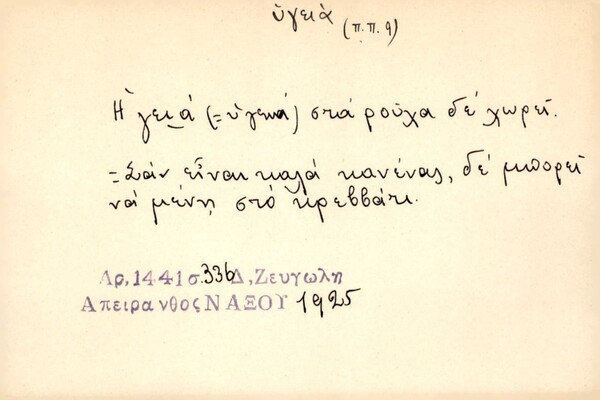 ὑγειὰ (π.π. 9)
Ἡ γειά (=ὑγειά) στά ροῦχα δέ χωρεῖ.
= Σάν εἶναι καλά κανένας, δέ μπορεῖ
νά μένῃ στό κρεββάτι.
Αρ, 1441 σ. 336 Δ, Ζευγωλη
Απειρανθος ΝΑΞΟΥ 1925